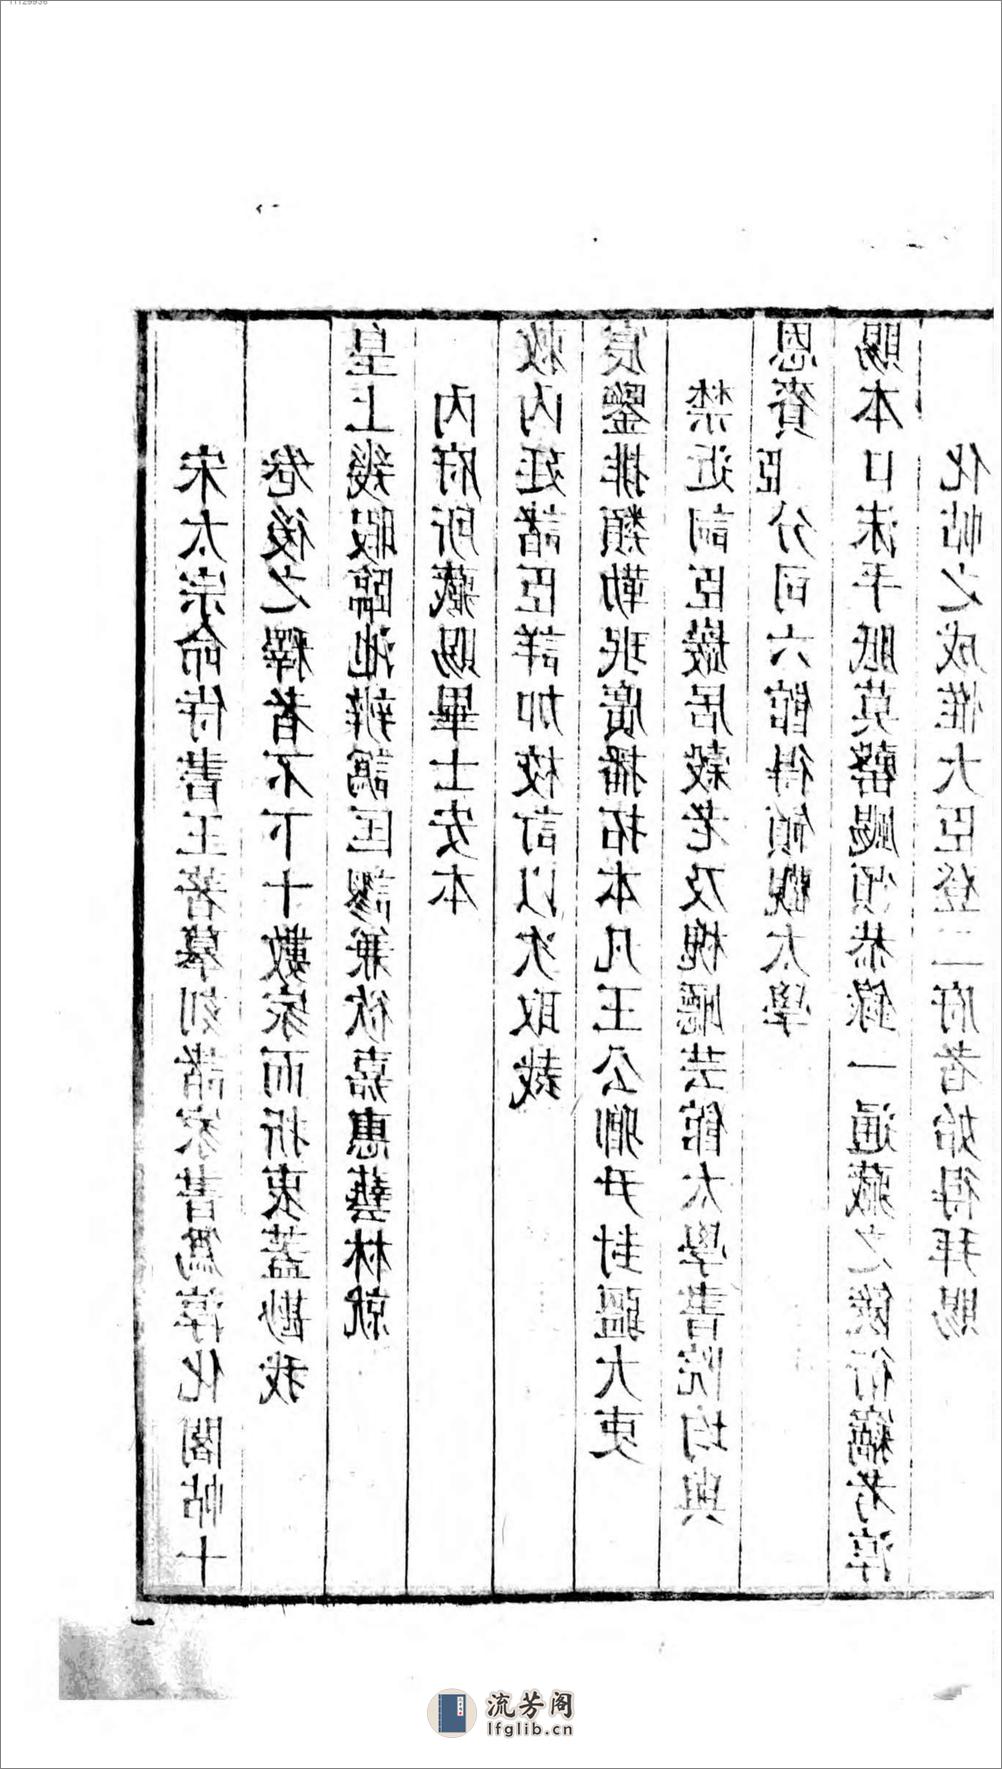 宋太宗命侍書王著摹刻諸家書爲淳化閣帖十
卷後之釋者不下十數家而折衷蓋尠我
皇上幾暇臨池辨譌匡謬兼欲嘉惠藝林就
內府所藏賜畢士安本
敕內廷諸臣詳加校訂以次取裁
宸鑒排類勒珉廣播拓本凡王公卿尹封疆大吏
禁近詞臣巖居穀老及槐廳芸館太學書院均與
恩賚臣分司六館得領觀太學
賜本口沫手胝莫罄颺頌恭錄一通藏之篋衍竊考淳
化帖之成惟大臣登二府者始得拜賜
流芳阁
lfglib.cn